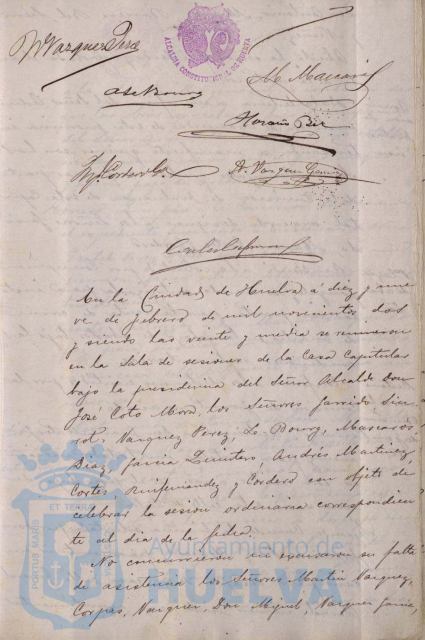 Vazquez Perez
ALCALDIA CONSTITUCIONAL DE HUELVA
A. Le Bourg
M. Mascarós
Horacio Bel
Cordero
A. Vazquez
En la Ciudad de Huelva a diez y nue
ve de febrero de mil novecientos dos
y siendo las veinte y media se reunieron
en la Sala de sesiones de la Casa Capitular
bajo la presidencia del Señor Alcalde Don
José Coto Mora, los Señores Garrido
Vazquez Perez, Le Bourg, Mascarós
Diaz, Garcia Quintero, Andrés Martinez
Cortes, y Cordero con objeto de
celebrar la sesión ordinaria correspondien
te al dia de la fecha.
No concurrieron su falta
de asistencia los Señores Martin Vazquez,
Corpas, Vazquez, Don Miguel, Vazquez Garcia,
PORTUS MARIS ET TERRAE
Ayuntamiento de
HUELVA